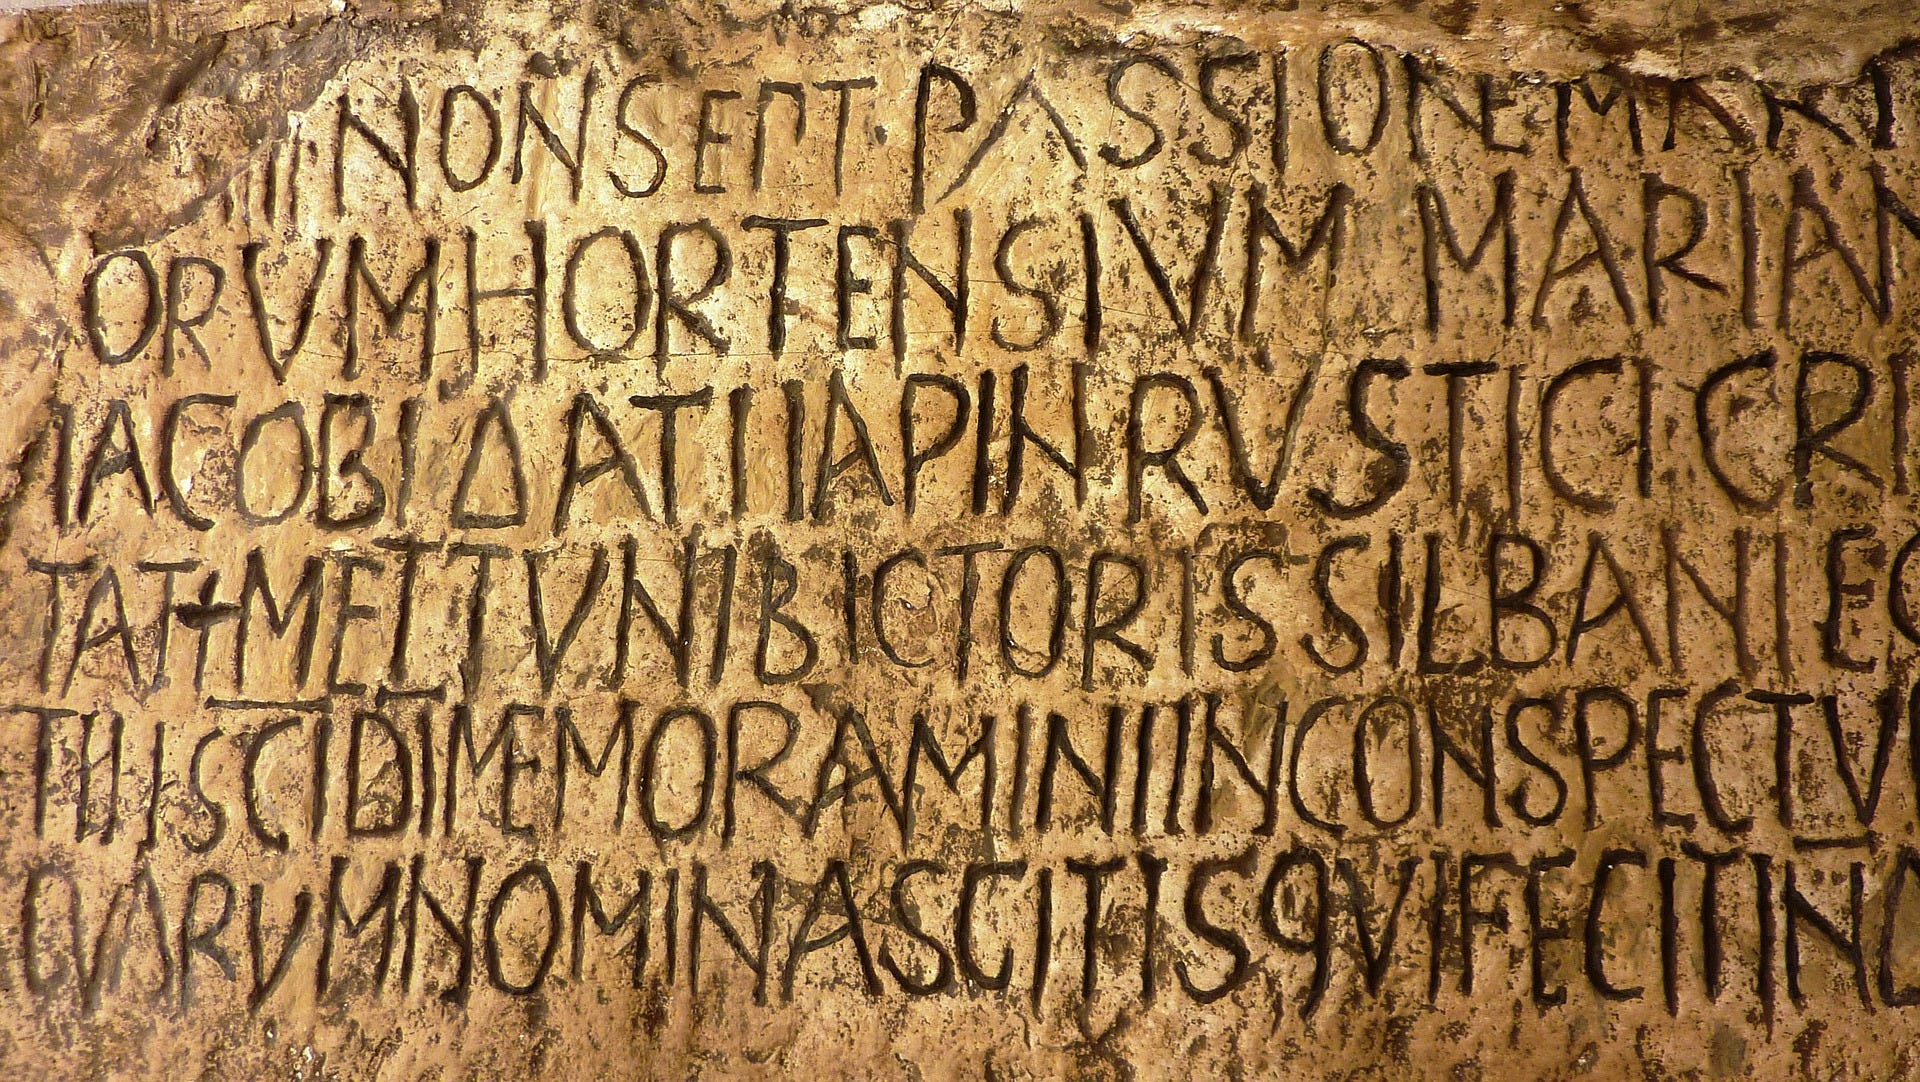 IIII NON SEPT · PASSIONE MART
ORVM HORTENSIVM MARIAN
IACOBI ΔATI IAPIN RVSTICI CRI
TAT+METTVNI BICTORIS SILBANI EG
TII SCI DI MEMORAMINI IN CONSPECTV
QVARVM NOMINA SCIT IS QVI FECIT IND